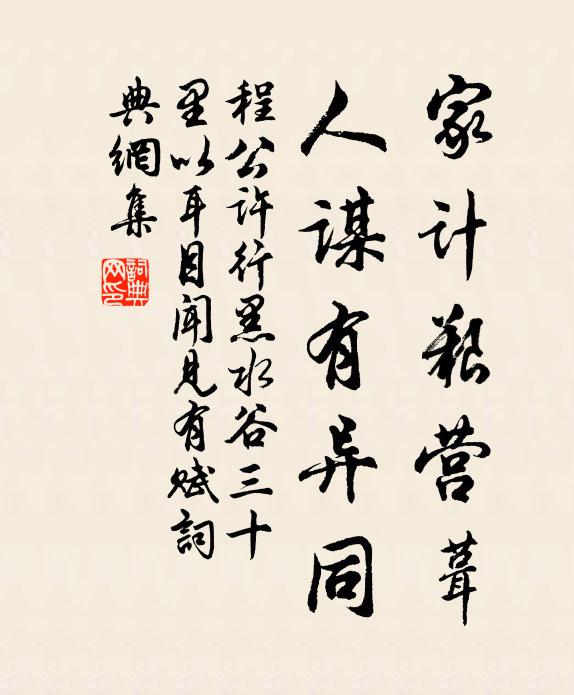 家计艰营葺
人谋有异同
程公许行黑水谷三十
里以耳目闻见有赋詞
典網集
詞典
网印